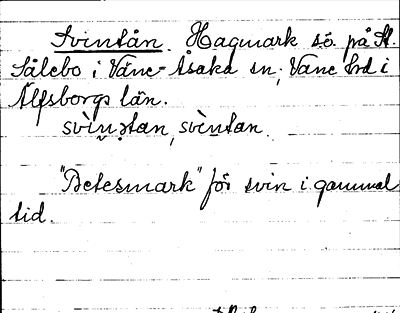 Svintån. Hagmark sö. på St.
Sålebo i Väne-Åsaka sn, Väne hd i
Älfsborgs län.
svìn̬ətan, svìntan.
"Betesmark" för svin i gammal
tid.